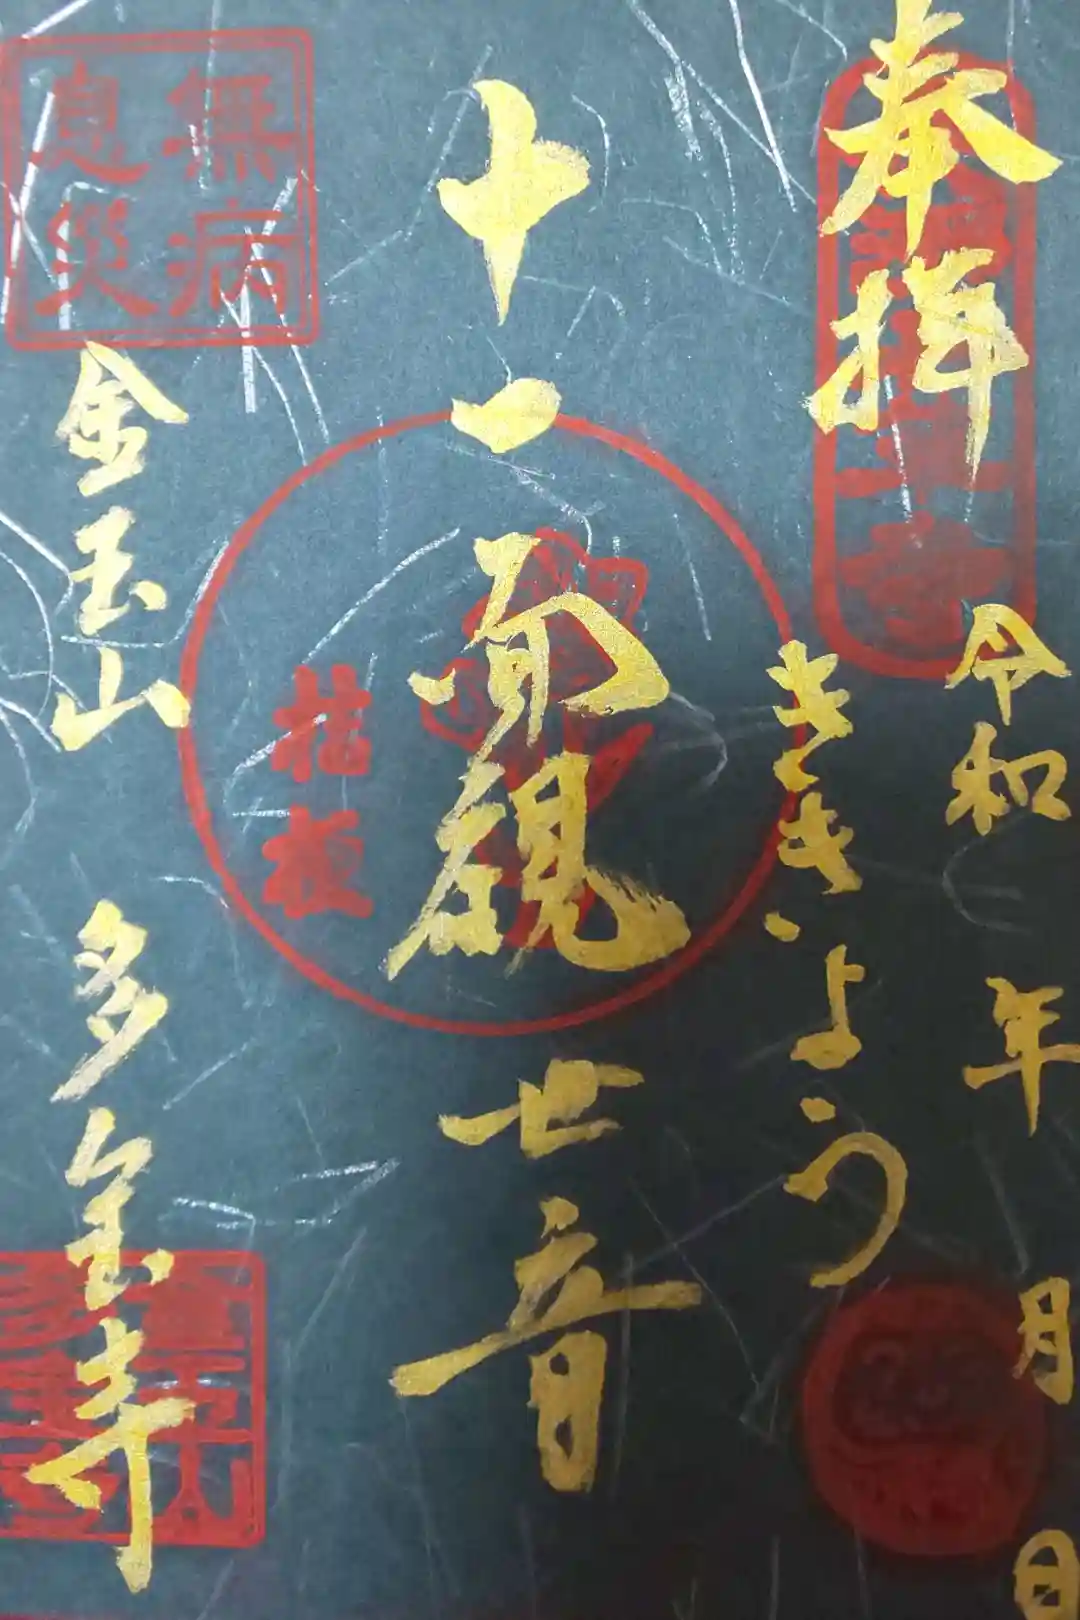 奉拝
令和　年　月　日
ききょう
十一面観世音
桔梗
無病
息災
金玉山　多宝寺